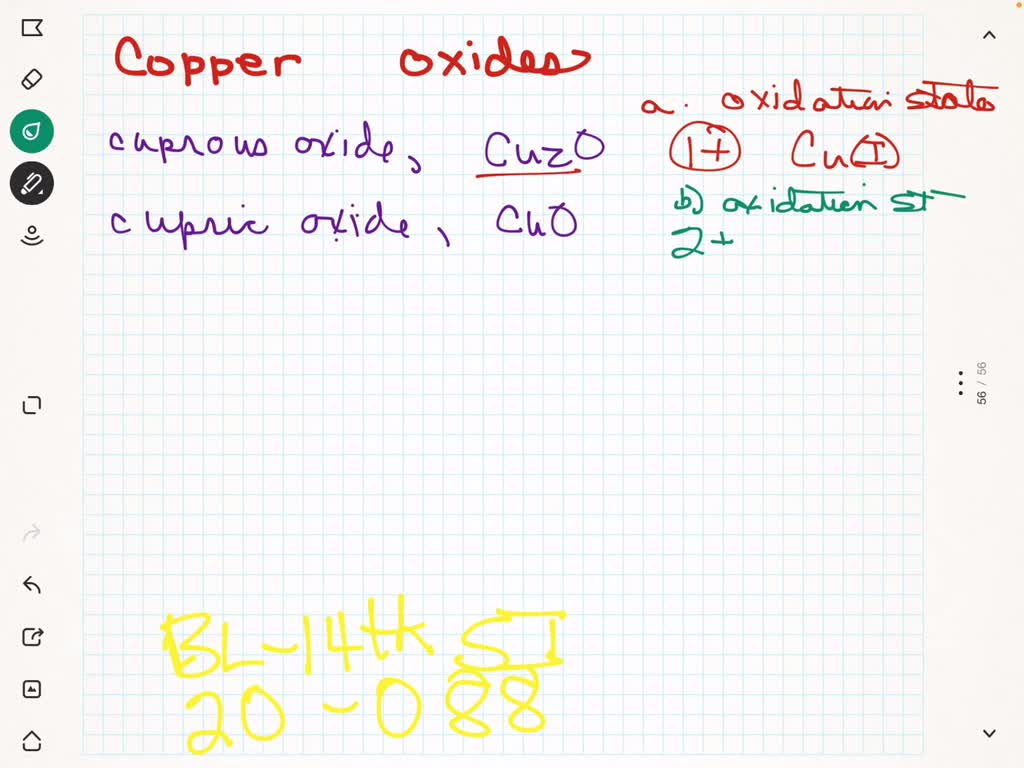 Copper oxides
cuprous oxide, Cu2O
cupric oxide, CuO
a. oxidation state
1+ Cu(I)
b) oxidation st
2+
56 / 56
BL-14th ST
20-088